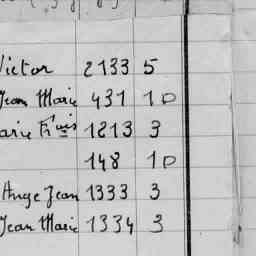 Victor 2133 5
Jean Marie 431 10
Marie Frçois 1213 3
148 10
Ange Jean 1333 3
Jean Marie 1334 3